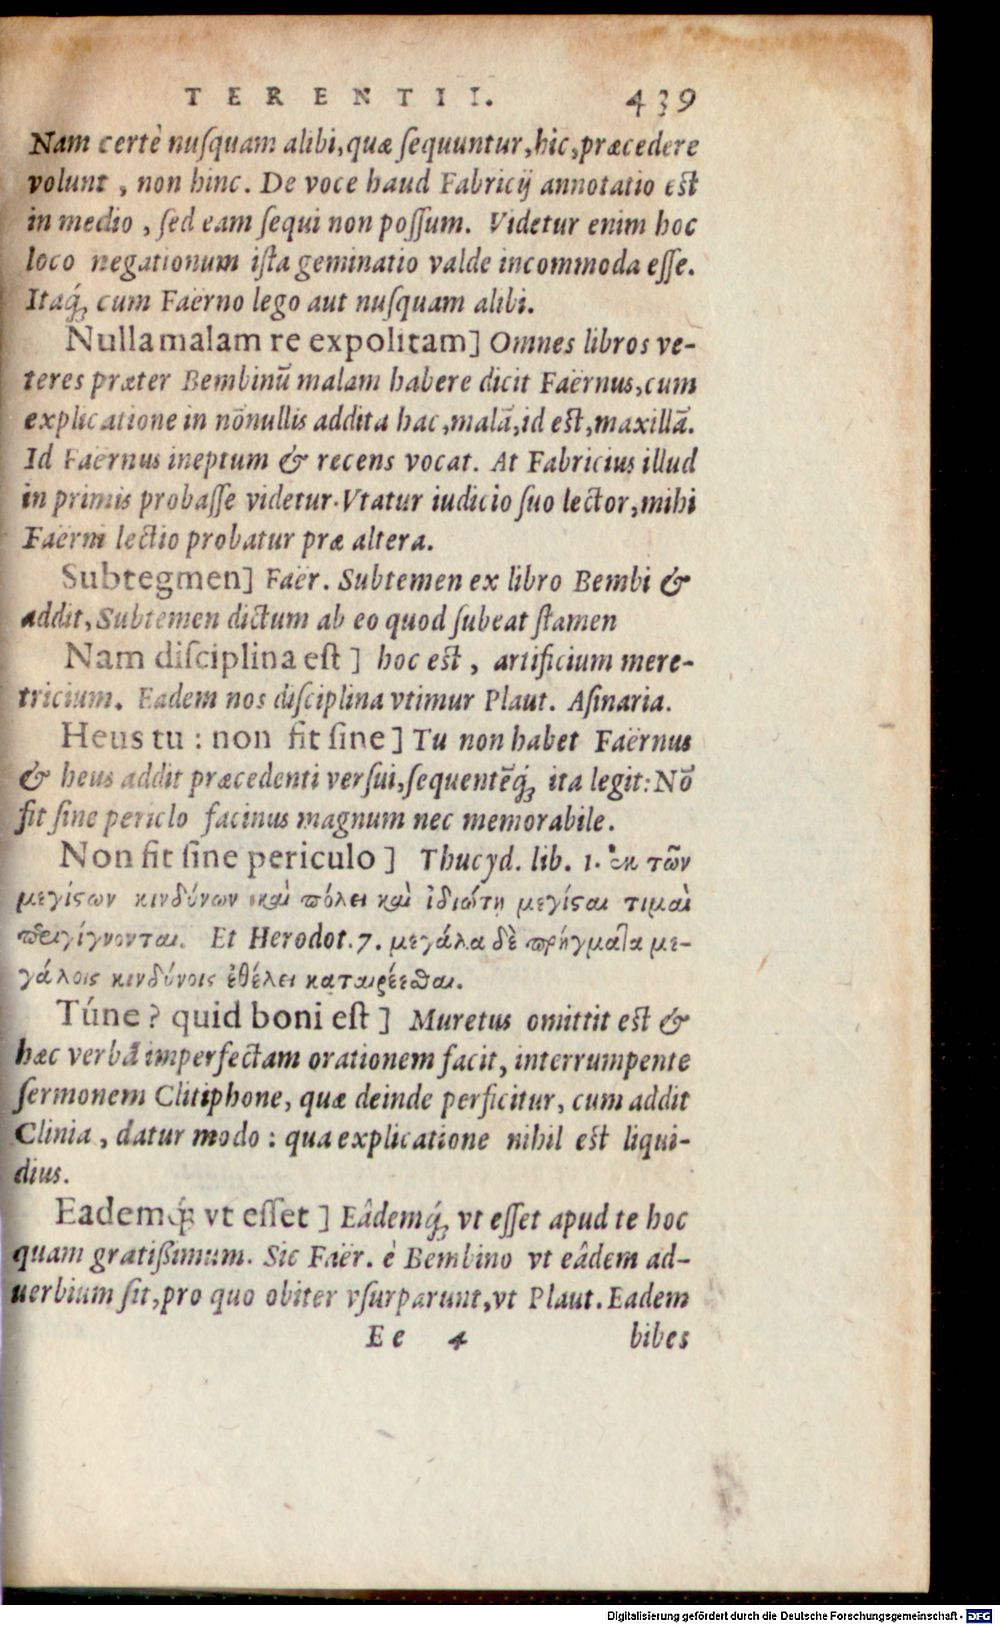 TERENTII. 439
Nam certè nuſquam alibi, quæ ſequuntur, hic, præcedere
volunt, non hinc. De voce haud Fabricij annotatio est
in medio, ſed eam ſequi non poſſum. Videtur enim hoc
loco negationum iſta geminatio valde incommoda eſſe.
Itaq́ꝫ cum Faërno lego aut nuſquam alibi.
Nulla malam re expolitam] Omnes libros ve-
teres præter Bembinũ malam habere dicit Faërnus, cum
explicatione in nõnullis addita hac, malã, id est, maxillã.
Id Faërnus ineptum & recens vocat. At Fabricius illud
in primis probaſſe videtur. Vtatur iudicio ſuo lector, mihi
Faërni lectio probatur præ altera.
Subtegmen] Faër. Subtemen ex libro Bembi &
addit, Subtemen dictum ab eo quod ſubeat ſtamen
Nam diſciplina eſt] hoc est, artificium mere-
tricium. Eadem nos diſciplina vtimur Plaut. Aſinaria.
Heus tu : non fit ſine] Tu non habet Faërnus
& heus addit præcedenti verſui, ſequentẽq́ꝫ ita legit: Nõ
fit ſine periclo facinus magnum nec memorabile.
Non fit ſine periculo] Thucyd. lib. 1. ἐκ τῶν
μεγίϛων κινδύνων καὶ πόλει καὶ ἰδιώτῃ μεγίϛαι τιμαὶ
περιγίγνονται. Et Herodot. 7. μεγάλα δὲ πρήγματα με-
γάλοις κινδύνοις ἐθέλει καταιρέεσθαι.
Túne? quid boni eſt] Muretus omittit est &
hæc verba imperfectam orationem facit, interrumpente
ſermonem Clitiphone, quæ deinde perficitur, cum addit
Clinia, datur modo : qua explicatione nihil est liqui-
dius.
Eademq́ꝫ vt eſſet] Eâdemq́ꝫ vt eſſet apud te hoc
quam gratißimum. Sic Faër. è Bembino vt eâdem ad-
uerbium ſit, pro quo obiter vſurparunt, vt Plaut. Eadem
Ee 4 bibes
Digitalisierung gefördert durch die Deutsche Forschungsgemeinschaft - DFG